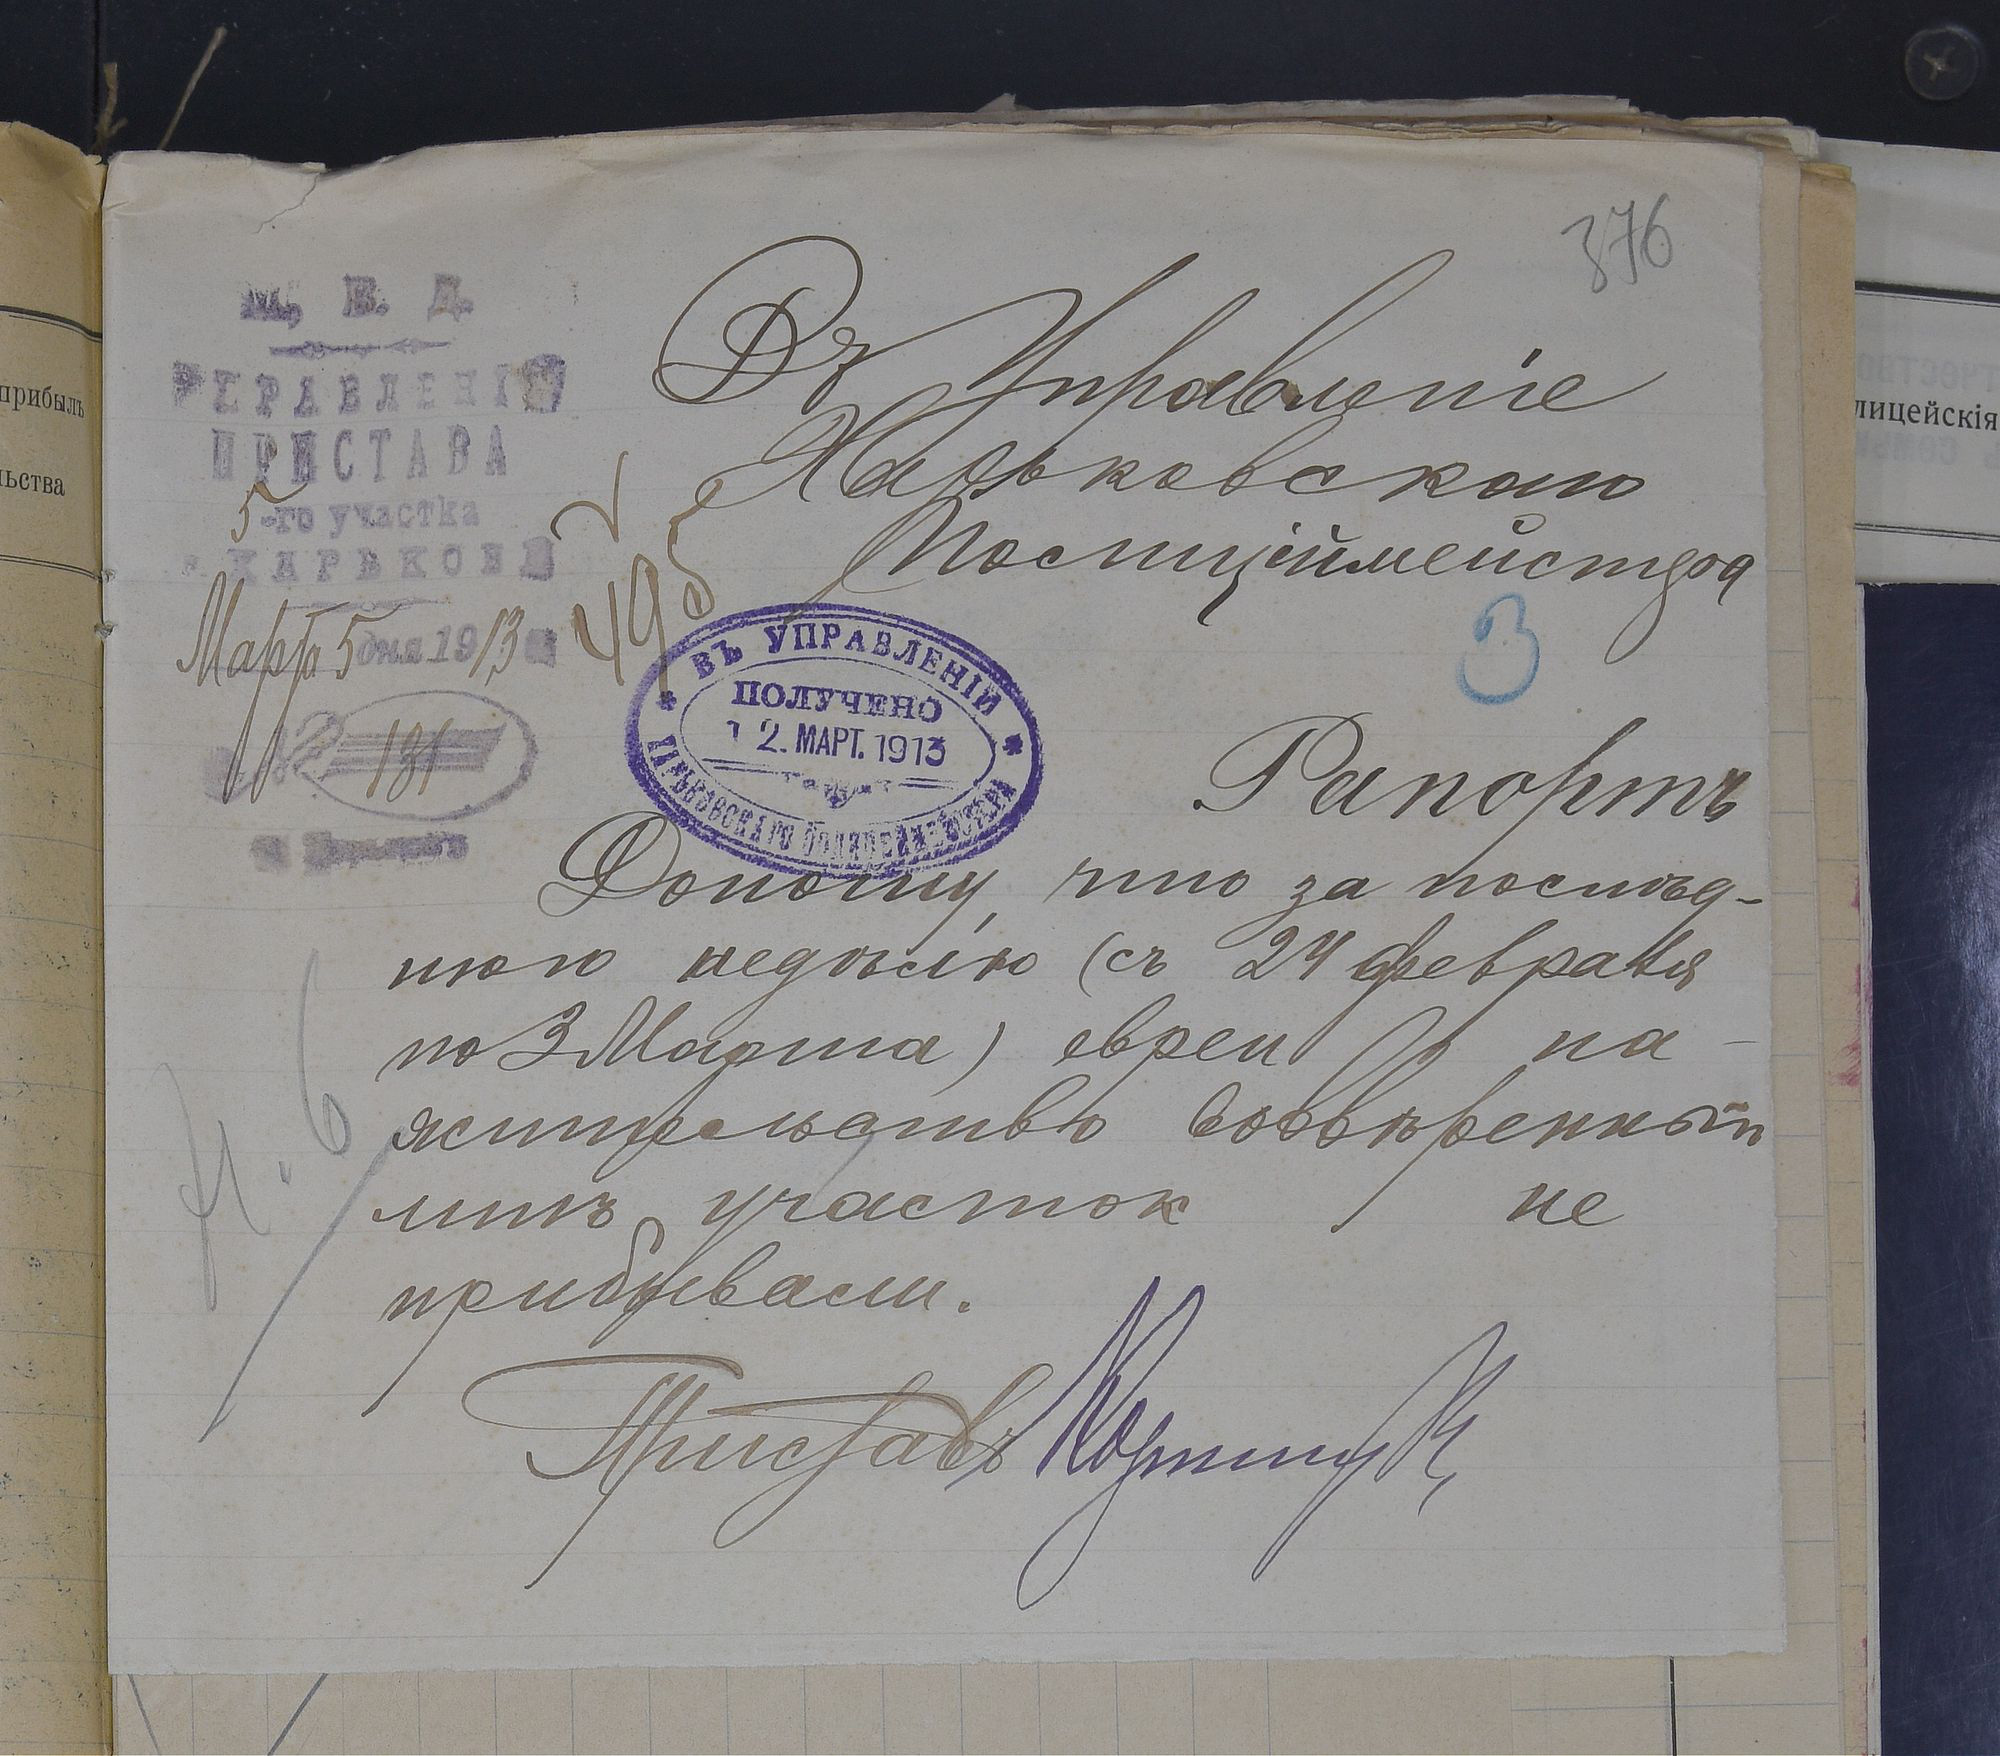 376
М. В. Д.
УПРАВЛЕНІЕ
ПРИСТАВА
5-го участка
г. ХАРЬКОВА
Марта 5 дня 1913
№ 181
г. Харьковъ
495
Въ Управленіе
Харьковскаго
Полиціймейстера
3
ВЪ УПРАВЛЕНІИ
ПОЛУЧЕНО
12. МАРТ. 1913
ХАРЬКОВСКАГО ПОЛИЦЕЙМЕЙСТЕРА
Рапортъ
Доношу, что за послѣд-
нюю недѣлю (съ 24 февраля
по 3 Марта) евреи на
жительство во ввѣренный
мнѣ участок не
прибывали.
Приставъ
прибылъ
льства
лицейскія